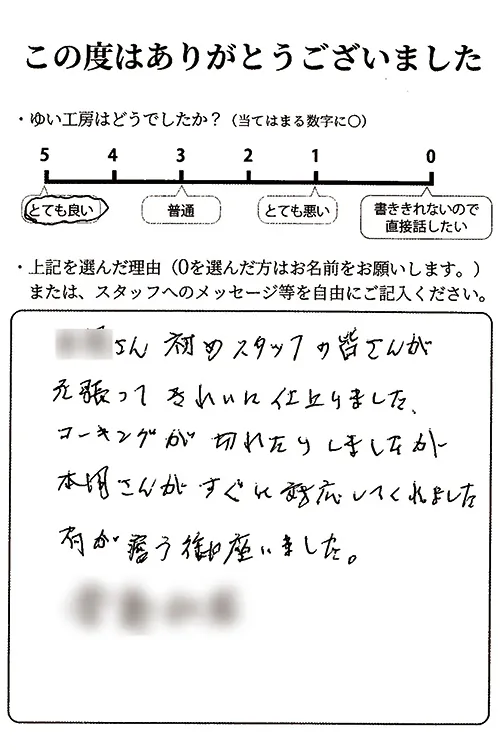 この度はありがとうございました
・ゆい工房はどうでしたか？（当てはまる数字に〇）
5 4 3 2 1 0
とても良い 普通 とても悪い 書ききれないので
直接話したい
・上記を選んだ理由（0を選んだ方はお名前をお願いします。）
または、スタッフへのメッセージ等を自由にご記入ください。
さん 初めスタッフの皆さんが
頑張って きれいに 仕上りました、
コーキングが 切れたりしましたが
さんがすぐに対応してくれました
有が 御座いました。